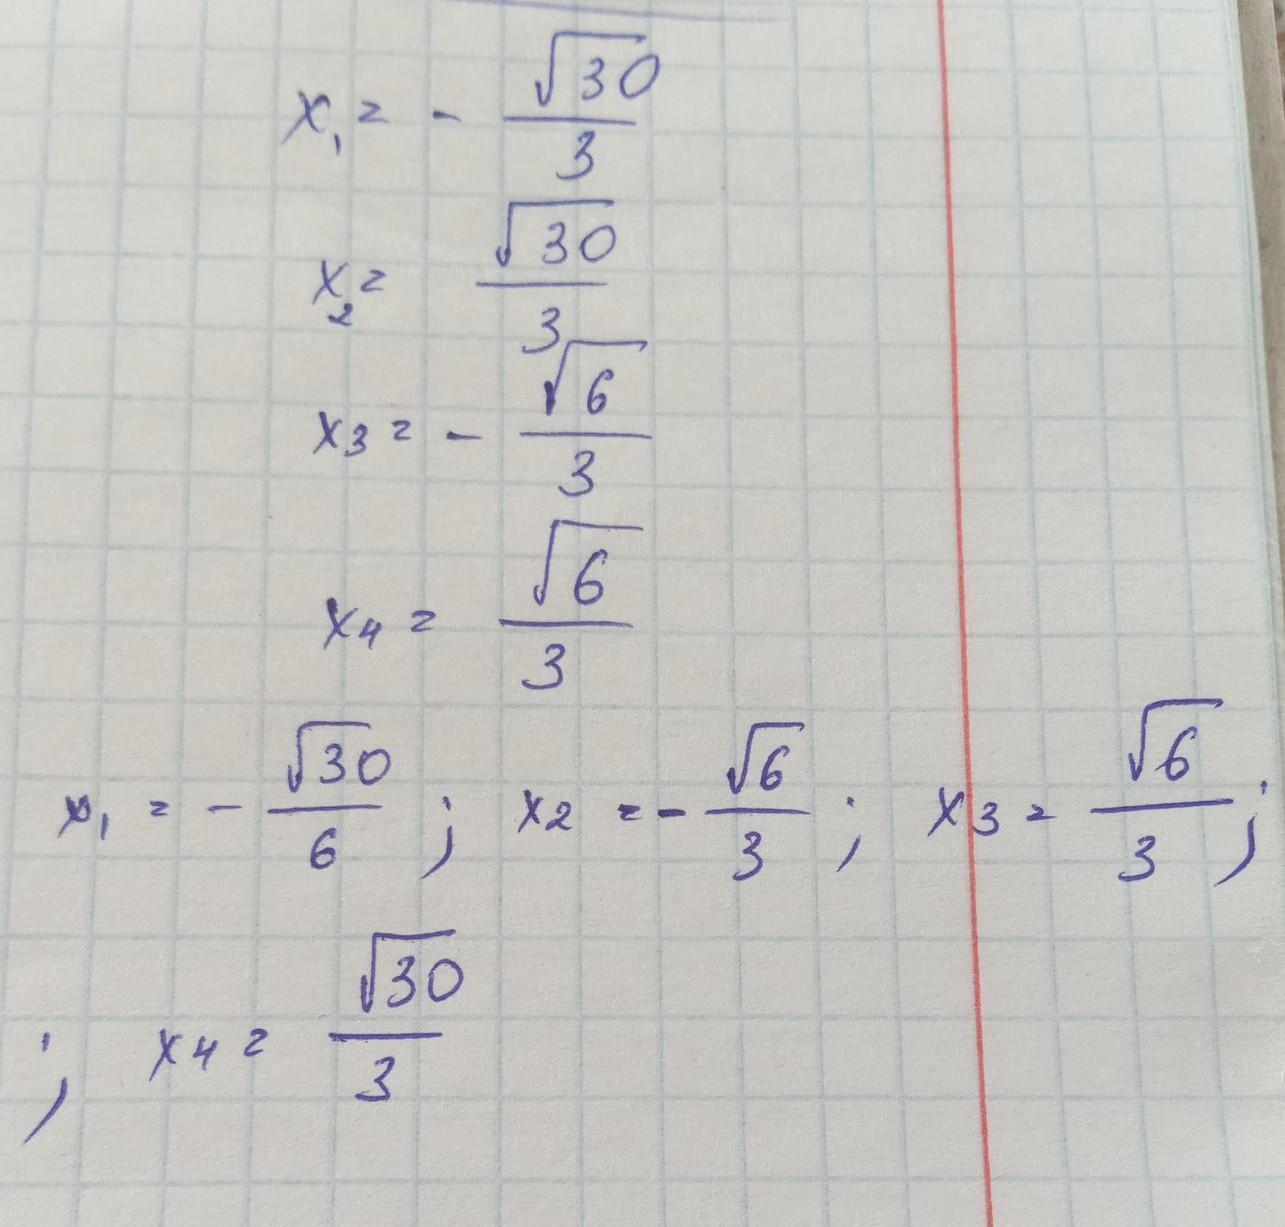 x₁ = - √30/3
x₂ = √30/3
x₃ = - √6/3
x₄ = √6/3
x₁ = - √30/6 ; x₂ = - √6/3 ; x₃ = √6/3 ;
; x₄ = √30/3